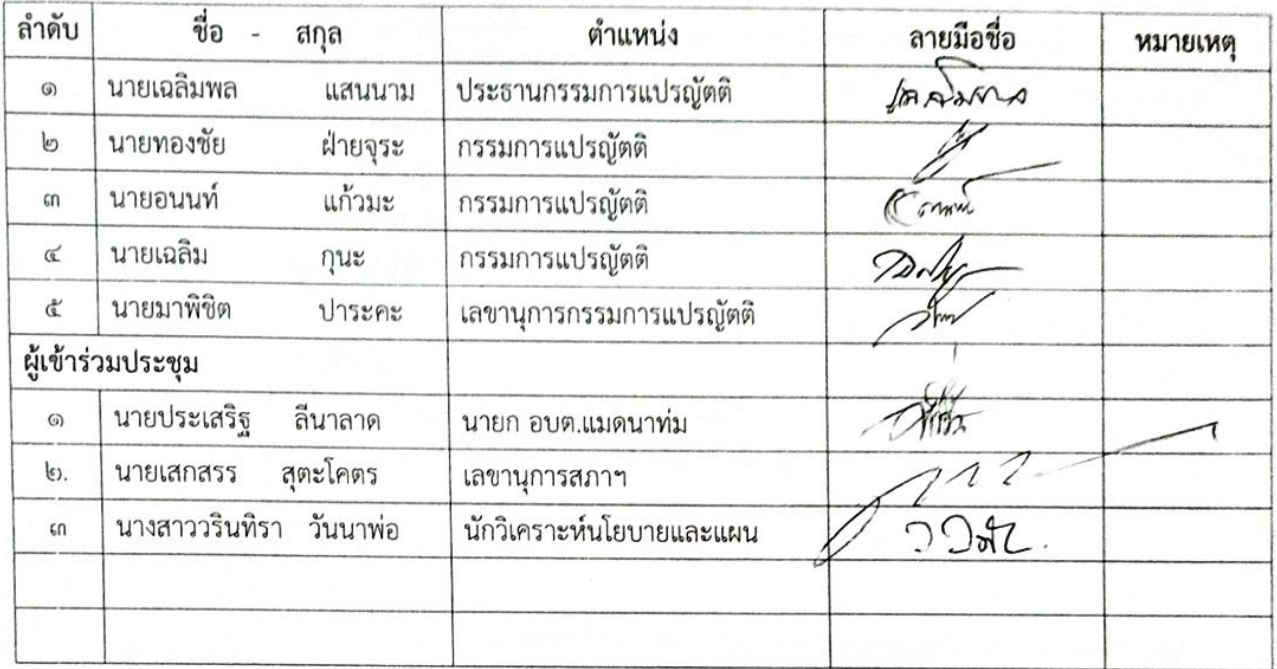 ลำดับ ชื่อ - สกุล ตำแหน่ง ลายมือชื่อ หมายเหตุ
๑ นายเฉลิมพล แสนนาม ประธานกรรมการแปรญัตติ
๒ นายทองชัย ฝ่ายจุระ กรรมการแปรญัตติ
๓ นายอนนท์ แก้วมะ กรรมการแปรญัตติ
๔ นายเฉลิม กุนะ กรรมการแปรญัตติ
๕ นายมาพิชิต ปาระคะ เลขานุการกรรมการแปรญัตติ
ผู้เข้าร่วมประชุม
๑ นายประเสริฐ ลีนาลาด นายก อบต.แมดนาท่ม
๒. นายเสกสรร สุตะโคตร เลขานุการสภาฯ
๓ นางสาววรินทิรา วันนาพ่อ นักวิเคราะห์นโยบายและแผน